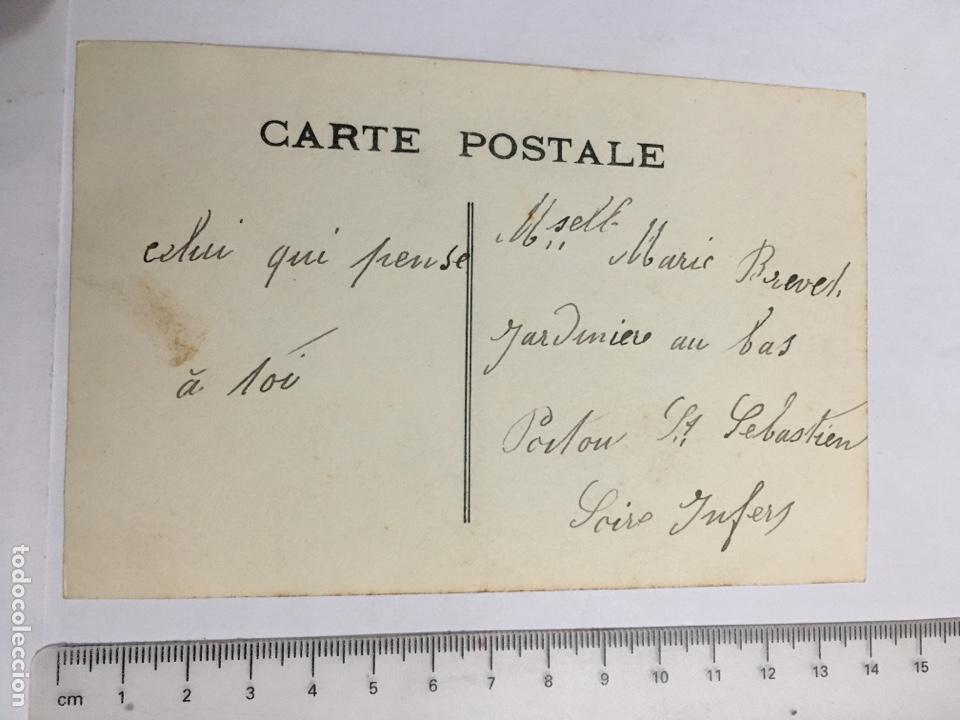 CARTE POSTALE
celui qui pense
à toi
Mselle
Marie Brevet
Jardiniere au bas
Poitou St Sebastien
Loire Infers
todocoleccion
cm 1 2 3 4 5 6 7 8 9 10 11 12 13 14 15